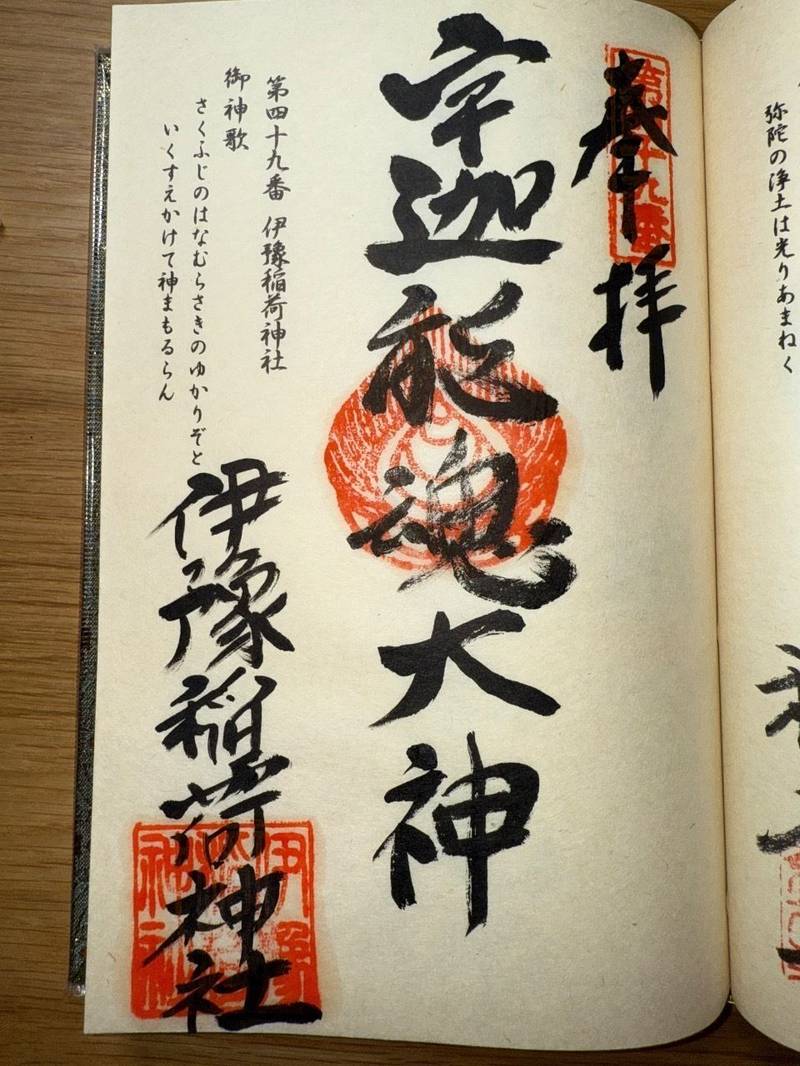 弥陀の浄土は光りあまねく
奉拝
第四十九番
宇迦能魂大神
第四十九番 伊豫稲荷神社
御神歌
さくふじのはなむらさきのゆかりぞと
いくすえかけて神まもるらん
伊豫稲荷神社
伊豫稲荷神社